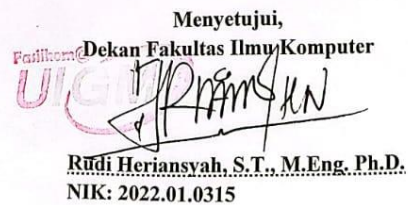 Menyetujui,
Dekan Fakultas Ilmu Komputer
Fasilkom@
UIGM
Rudi Heriansyah, S.T., M.Eng. Ph.D.
NIK: 2022.01.0315